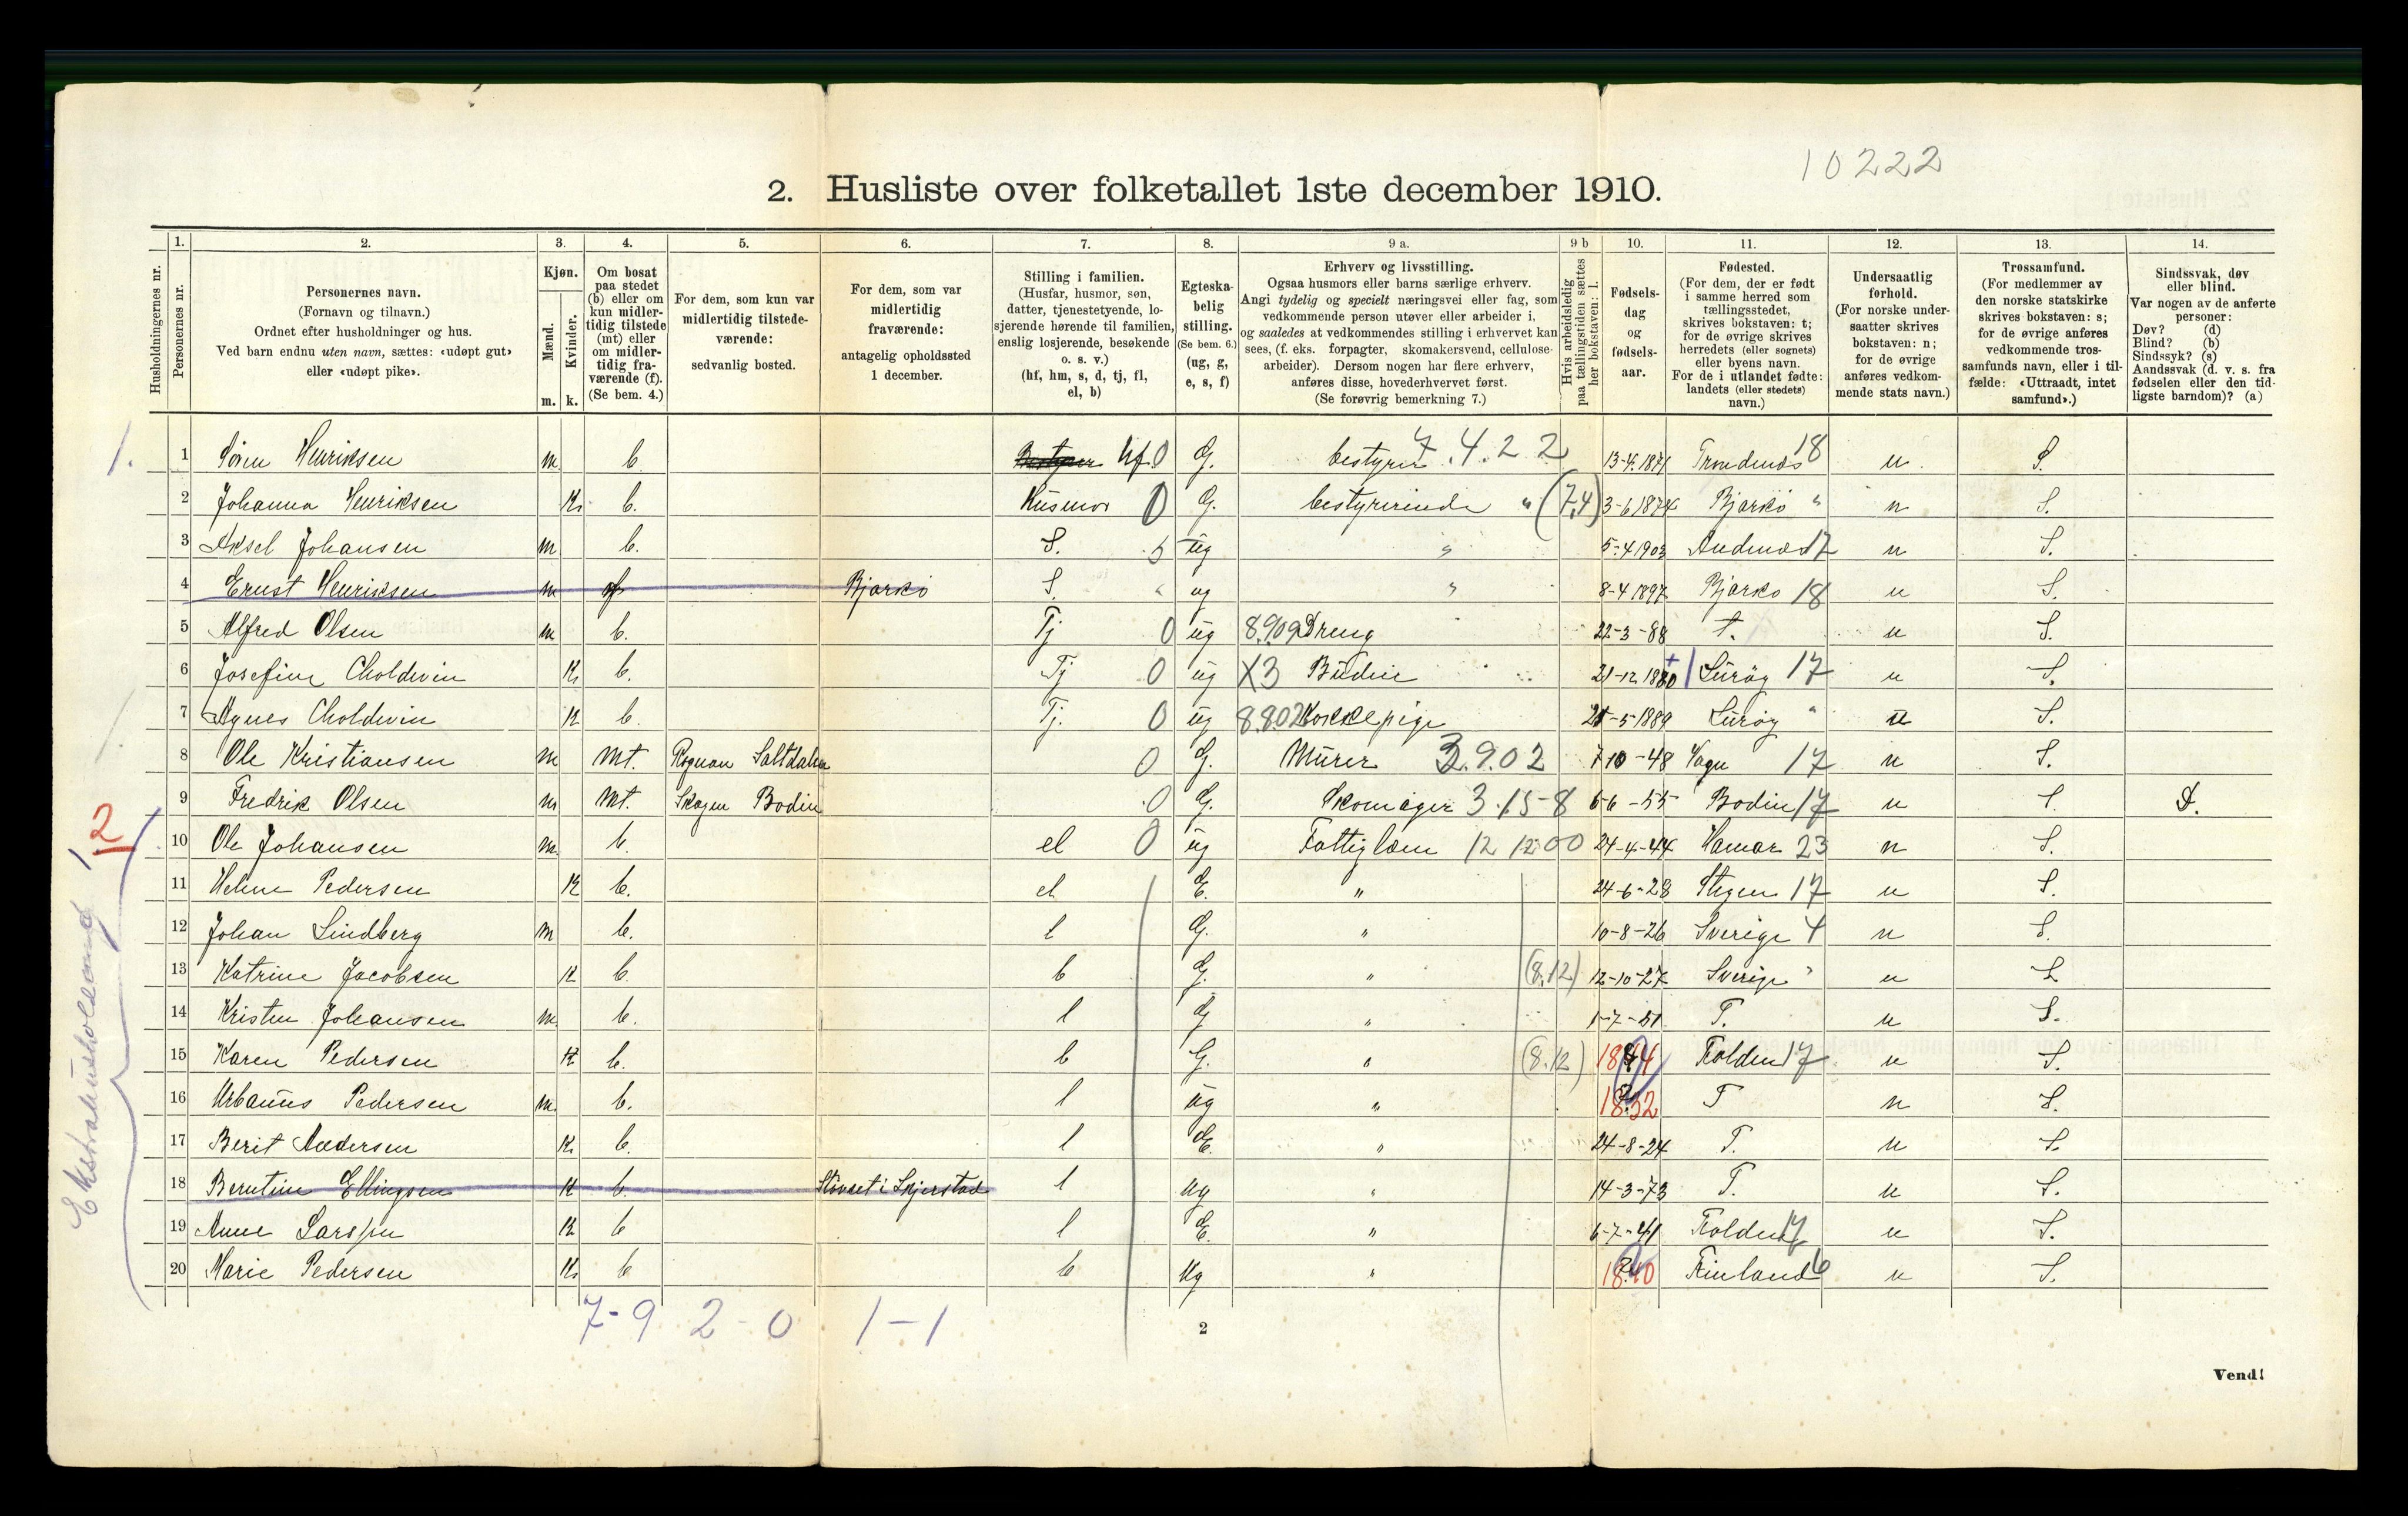 10222
2. Husliste over folketallet 1ste december 1910.
Husholdningernes nr.
1. Personernes nr.
2. Personernes navn.
(Fornavn og tilnavn.)
Ordnet efter husholdninger og hus.
Ved barn endnu uten navn, sættes: «udøpt gut»
eller «udøpt pike».
3. Kjøn.
Mænd. Kvinder.
m. k.
4. Om bosat
paa stedet
(b) eller om
kun midler-
tidig tilstede
(mt) eller
om midler-
tidig fra-
værende (f).
(Se bem. 4.)
5. For dem, som kun var
midlertidig tilstede-
værende:
sedvanlig bosted.
6. For dem, som var
midlertidig
fraværende:
antagelig opholdssted
1 december.
7. Stilling i familien.
(Husfar, husmor, søn,
datter, tjenestetyende, lo-
sjerende hørende til familien,
enslig losjerende, besøkende
o. s. v.)
(hf, hm, s, d, tj, fl,
el, b)
8. Egteska-
belig
stilling.
(Se bem. 6.)
(ug, g,
e, s, f)
9 a. Erhverv og livsstilling.
Ogsaa husmors eller barns særlige erhverv.
Angi tydelig og specielt næringsvei eller fag, som
vedkommende person utøver eller arbeider i,
og saaledes at vedkommendes stilling i erhvervet kan
sees, (f. eks. forpagter, skomakersvend, cellulose-
arbeider). Dersom nogen har flere erhverv,
anføres disse, hovederhvervet først.
(Se forøvrig bemerkning 7.)
9 b Hvis arbeidsledig
paa tællingstiden sættes
her bokstaven: l.
10. Fødsels-
dag
og
fødsels-
aar.
11. Fødested.
(For dem, der er født
i samme herred som
tællingsstedet,
skrives bokstaven: t;
for de øvrige skrives
herredets (eller sognets)
eller byens navn.
For de i utlandet fødte:
landets (eller stedets)
navn.)
12. Undersaatlig
forhold.
(For norske under-
saatter skrives
bokstaven: n;
for de øvrige
anføres vedkom-
mende stats navn.)
13. Trossamfund.
(For medlemmer av
den norske statskirke
skrives bokstaven: s;
for de øvrige anføres
vedkommende tros-
samfunds navn, eller i til-
fælde: «Uttraadt, intet
samfund».)
14. Sindssvak, døv
eller blind.
Var nogen av de anførte
personer:
Døv? (d)
Blind? (b)
Sindssyk? (s)
Aandssvak (d. v. s. fra
fødselen eller den tid-
ligste barndom)? (a)
1. 1 Sören Henriksen m b. Bestyrer hf. 0 G. bestyrer 7.4.2 2 13-4.1871 Trondenæs 18 n. S.
2 Johanna Henriksen K b. Husmor 0 G. bestyrerinde " (7,4) 3-6 1874 Bjarkö " n S.
3 Aksel Johansen m b. S. 5 ug " 5-4 1903 Andenæs 17 n S.
4 Ernst Henriksen m f Bjarkö S. " ug " 8-4 1897 Bjarkö 18 n S.
5 Alfred Olsen m b. Tj 0 ug 8.909 Dreng 22-3-88 t. n S.
6 Josefine Choldevin K b. Tj 0 ug X3 Budeie 21-12 1880 Luröy 17 n S.
7 Agnes Choldevin K b. Tj. 0 ug 8.802 Kokkepige 21-5-1889 Luröy " n S.
8 Ole Kristiansen m mt. Rognan Saltdalen 0 G. Murer 3.9.02 7-10-48 Vagn 17 n S.
9 Fredrik Olsen m mt. Skagen Bodin 0 G. Skomager 3.15-8 6-6-55 Bodin 17 n S. D.
12
10 Ole Johansen m. b. el 0 ug Fattiglem 12 12 00 24-4-44 Hamar 23 n S.
11 Helene Pedersen K b. el E. " 24-6-28 Stegen 17 n S.
12 Johan Lindberg m b. l G. " 10-8-26 Sverige 4 n S.
13 Katrine Jacobsen K b. b G. " (8.12) 12-10-27 Sverige " n S
14 Kristen Johansen m. b. l G " 1-7-51 T. n S.
15 Karen Pedersen K b. b G. " (8.12) 1844 Folden 17 n S.
16 Urbanus Pedersen m. b. l ug " 1832 T n S.
17 Berit Andersen K b. l E. " 24-8-24 T. n S.
18 Berntine Ellingsen K b. Skjerstad l ug " 14-3-73 T. n S.
19 Anne Larssen K b l E. " 6-7-41 Folden 17 n S.
20 Marie Pedersen K b b ug " 1840 Finland 6 n S.
Ekstrahusholdning 1
7-9 2-0 1-1
2
Vend!